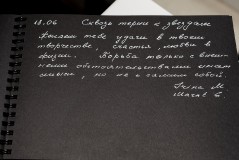 18.06 Сквозь тернии к звёздам
Желаем тебе удачи в твоём
творчестве, счастья, любви в
жизни. Борьба только с внеш-
ними обстоятельствами
но не с самим собой.
Irina M.